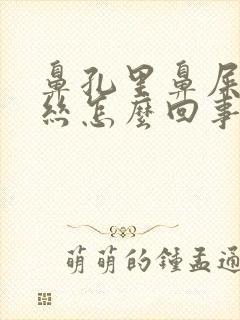 鼻孔里鼻屎
丝怎麽回事
萌萌的鍾孟通